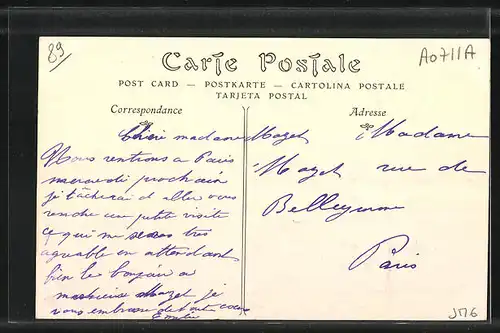 89
A0711A
Carte Postale
POST CARD — POSTKARTE — CARTOLINA POSTALE
TARJETA POSTAL
Correspondance
Adresse
Chère madame Mazet
Nous rentrons a Paris
mercredi prochain
je tâcherai d aller vous
rendre une petite visite
ce qui me seras très
agréable en attendant
bien le bonjour a
monsieur Mazet je
vous embrasse de tout coeur
Emilie
Madame
Mazet rue de
Belleyme
Paris